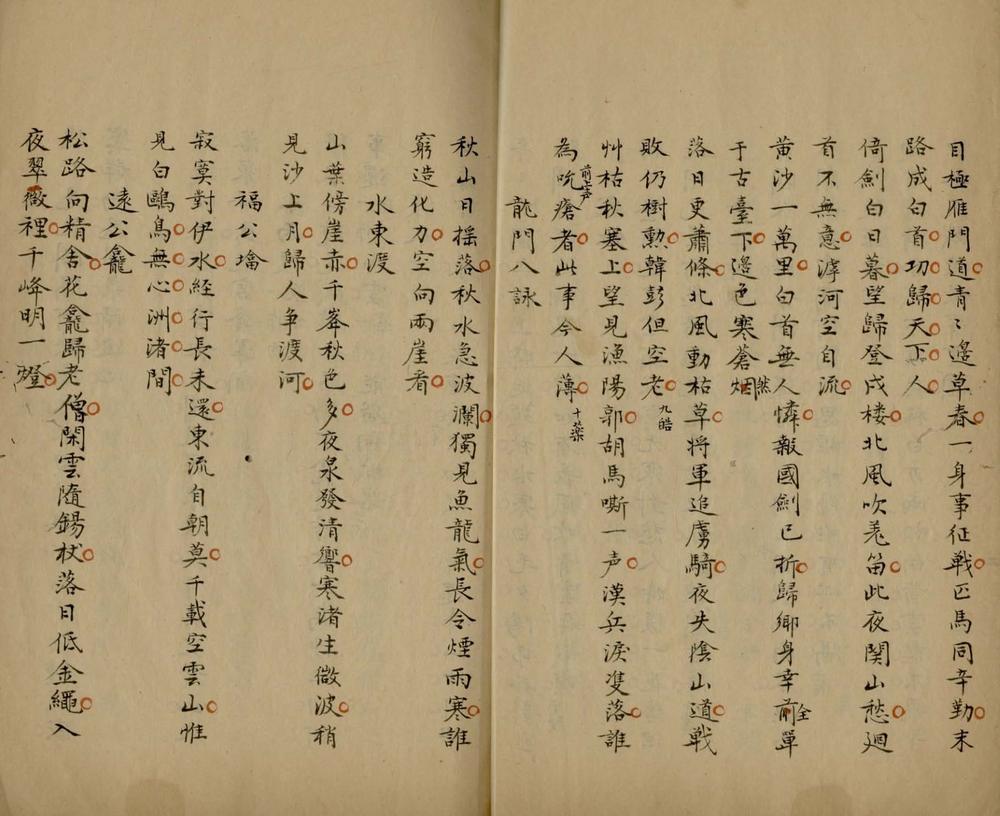 目極雁門道青〻邉草春一身事征戦匹馬同辛勤末
路成白首功歸天下人
倚劍白日暮望歸登戍楼北風吹羗笛此夜関山愁廻
首不無意滹河空自流
黄沙一萬里白首無人憐報國劍已折歸鄉身幸前單
全
于古臺下邉色寒蒼烟
然
落日更蕭條北風動枯草将軍追虜騎夜失陰山道戦
敗仍樹勲韓彭但空老
九皓
艸枯秋塞上望見漁陽郭胡馬嘶一声漢兵淚雙落誰
為吮瘡者此事今人薄
十藥
龍門八詠
秋山日揺落秋水急波瀾獨見魚龍氣長令煙雨寒誰
窮造化力空向兩崖看
水東渡
山葉傍崖赤千峯秋色多夜泉發清響寒渚生微波稍
見沙上月歸人争渡河
福公塔
寂寞對伊水経行長未還東流自朝莫千載空雲山惟
見白鷗鳥無心洲渚間
遠公龕
松路向精舎花龕歸老僧閑雲隨錫杖落日低金繩入
夜翠微裡千峰明一燈